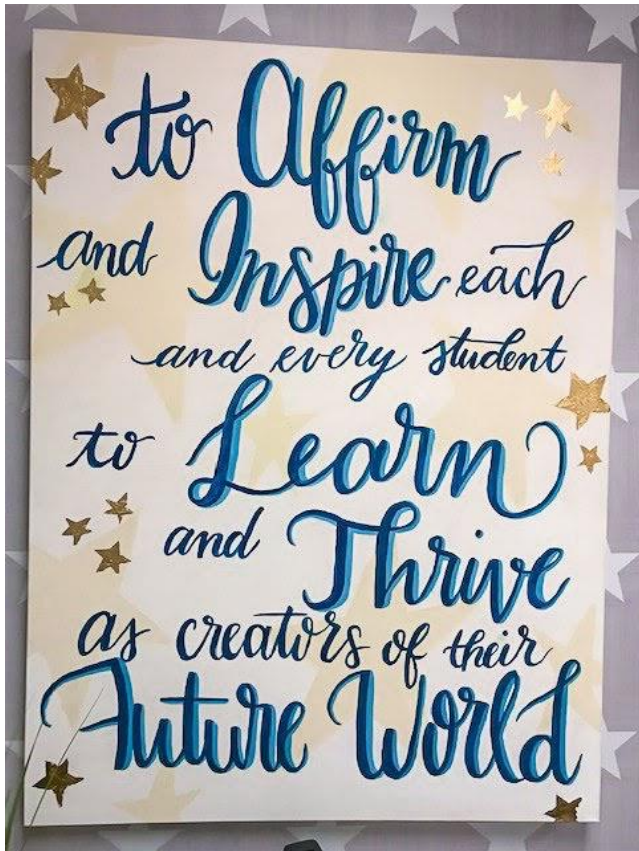 to Affirm
and Inspire each
and every student
to Learn
and Thrive
as creators of their
Future World